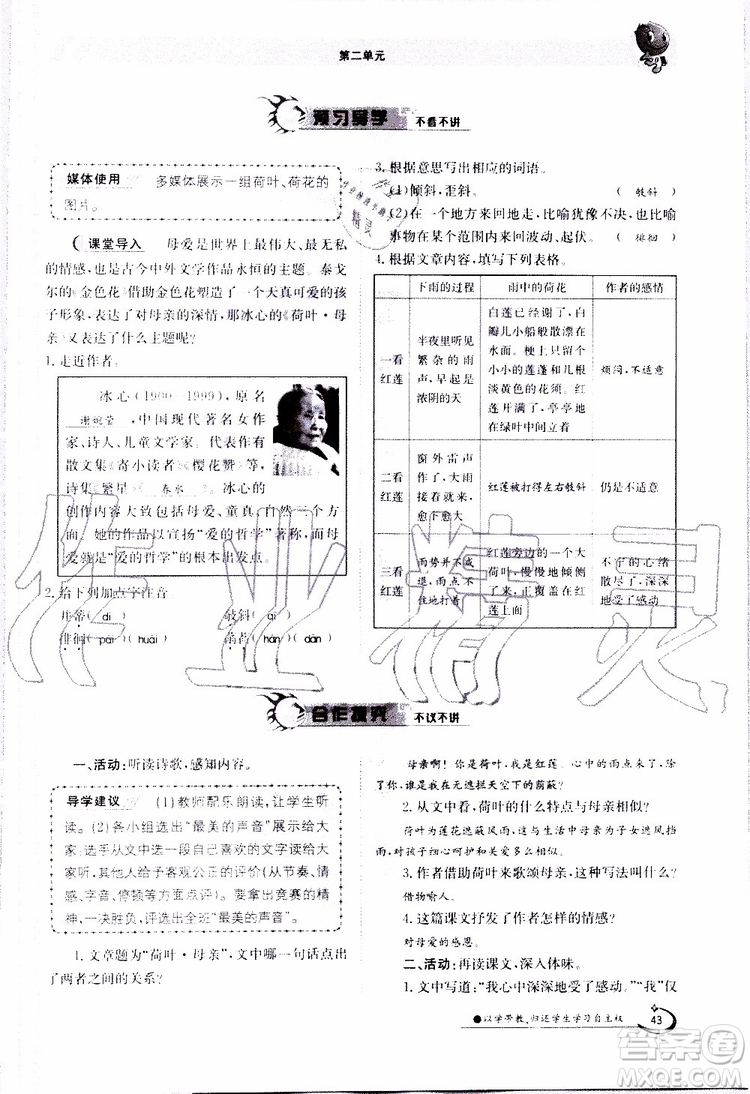 第二单元
预习导学 不看不讲
媒体使用 多媒体展示一组荷叶、荷花的
图片。
课堂导入 母爱是世界上最伟大、最无私
的情感,也是古今中外文学作品永恒的主题。泰戈
尔的《金色花》借助金色花塑造了一个天真可爱的孩
子形象,表达了对母亲的深情,那冰心的《荷叶·母
亲》又表达了什么主题呢?
1. 走近作者。
冰心(1900—1999),原名
谢婉莹,中国现代著名女作
家、诗人、儿童文学家。代表作有
散文集《寄小读者》《樱花赞》等,
诗集《繁星》《春水》。冰心的
创作内容大致包括母爱、童真、自然三个方
面。她的作品以宣扬“爱的哲学”著称,而母
爱就是“爱的哲学”的根本出发点。
2. 给下列加点字注音。
并蒂(dì) 攲斜(qī)
徘徊(pái)(huái) 菡萏(hàn)(dàn)
3. 根据意思写出相应的词语。
(1)倾斜,歪斜。 (攲斜)
(2)在一个地方来回地走,比喻犹像不决,也比
喻事物在某个范围内来回浮动、起伏。 (徘徊)
4. 根据文章内容,填写下列表格。
下雨的过程 雨中的荷花 作者的感情
一看红莲
半夜里听见
繁杂的雨
声,早起是
浓阴的天
白莲已经谢了,白
瓣儿小船般散漂在
水面。小莲蓬和几根
淡黄色的花须。红
莲开满了,亭亭地
在绿叶中间立着
烦闷,不适意
二看红莲
窗外雷声
作了,大雨
接着就来,
愈下愈大
红莲被打得左右攲斜
仍是不适意
三看红莲
雨势并不减
退,雨点不
住地打着
红莲旁边的一个大
荷叶,慢慢地倾侧
了来,正覆盖在红
莲上面
不宁的心绪
散尽了,深深
地受了感动
合作探究 不议不讲
一、活动:听读诗歌,感知内容。
导学建议 (1)教师配乐朗读,让学生听
读。(2)各小组选出“最美的声音”展示给大
家:选手从文中选一段自己喜欢的文字读给大
家听,其他人给予客观公正的评价(从节奏、情
感、字音、停顿等方面)。要拿出竞赛的精
神,一决胜负,评选出全班“最美的声音”。
1. 文章题为“荷叶·母亲”,文中哪一句话点出
了两者之间的关系?
母亲啊!你是荷叶,我是红莲。心中的雨点来了,除
了你,谁是我在无遮拦天空下的荫蔽?
2. 从文中看,荷叶的什么特点与母亲相似?
荷叶为莲花遮蔽风雨,这与生活中母亲为子女遮风挡
雨,对孩子细心呵护和关爱多么相似。
3. 作者借助荷叶来歌颂母亲,这种写法叫什么?
借物喻人。
4. 这篇课文抒发了作者怎样的情感?
对母爱的感恩。
二、活动:再读课文,深入体味。
1. 文中写道:“我心中深深地受了感动。”“我”仅
●以学带教,归还学生学习自主权
43
作业精灵
答案圈
MXQE.COM